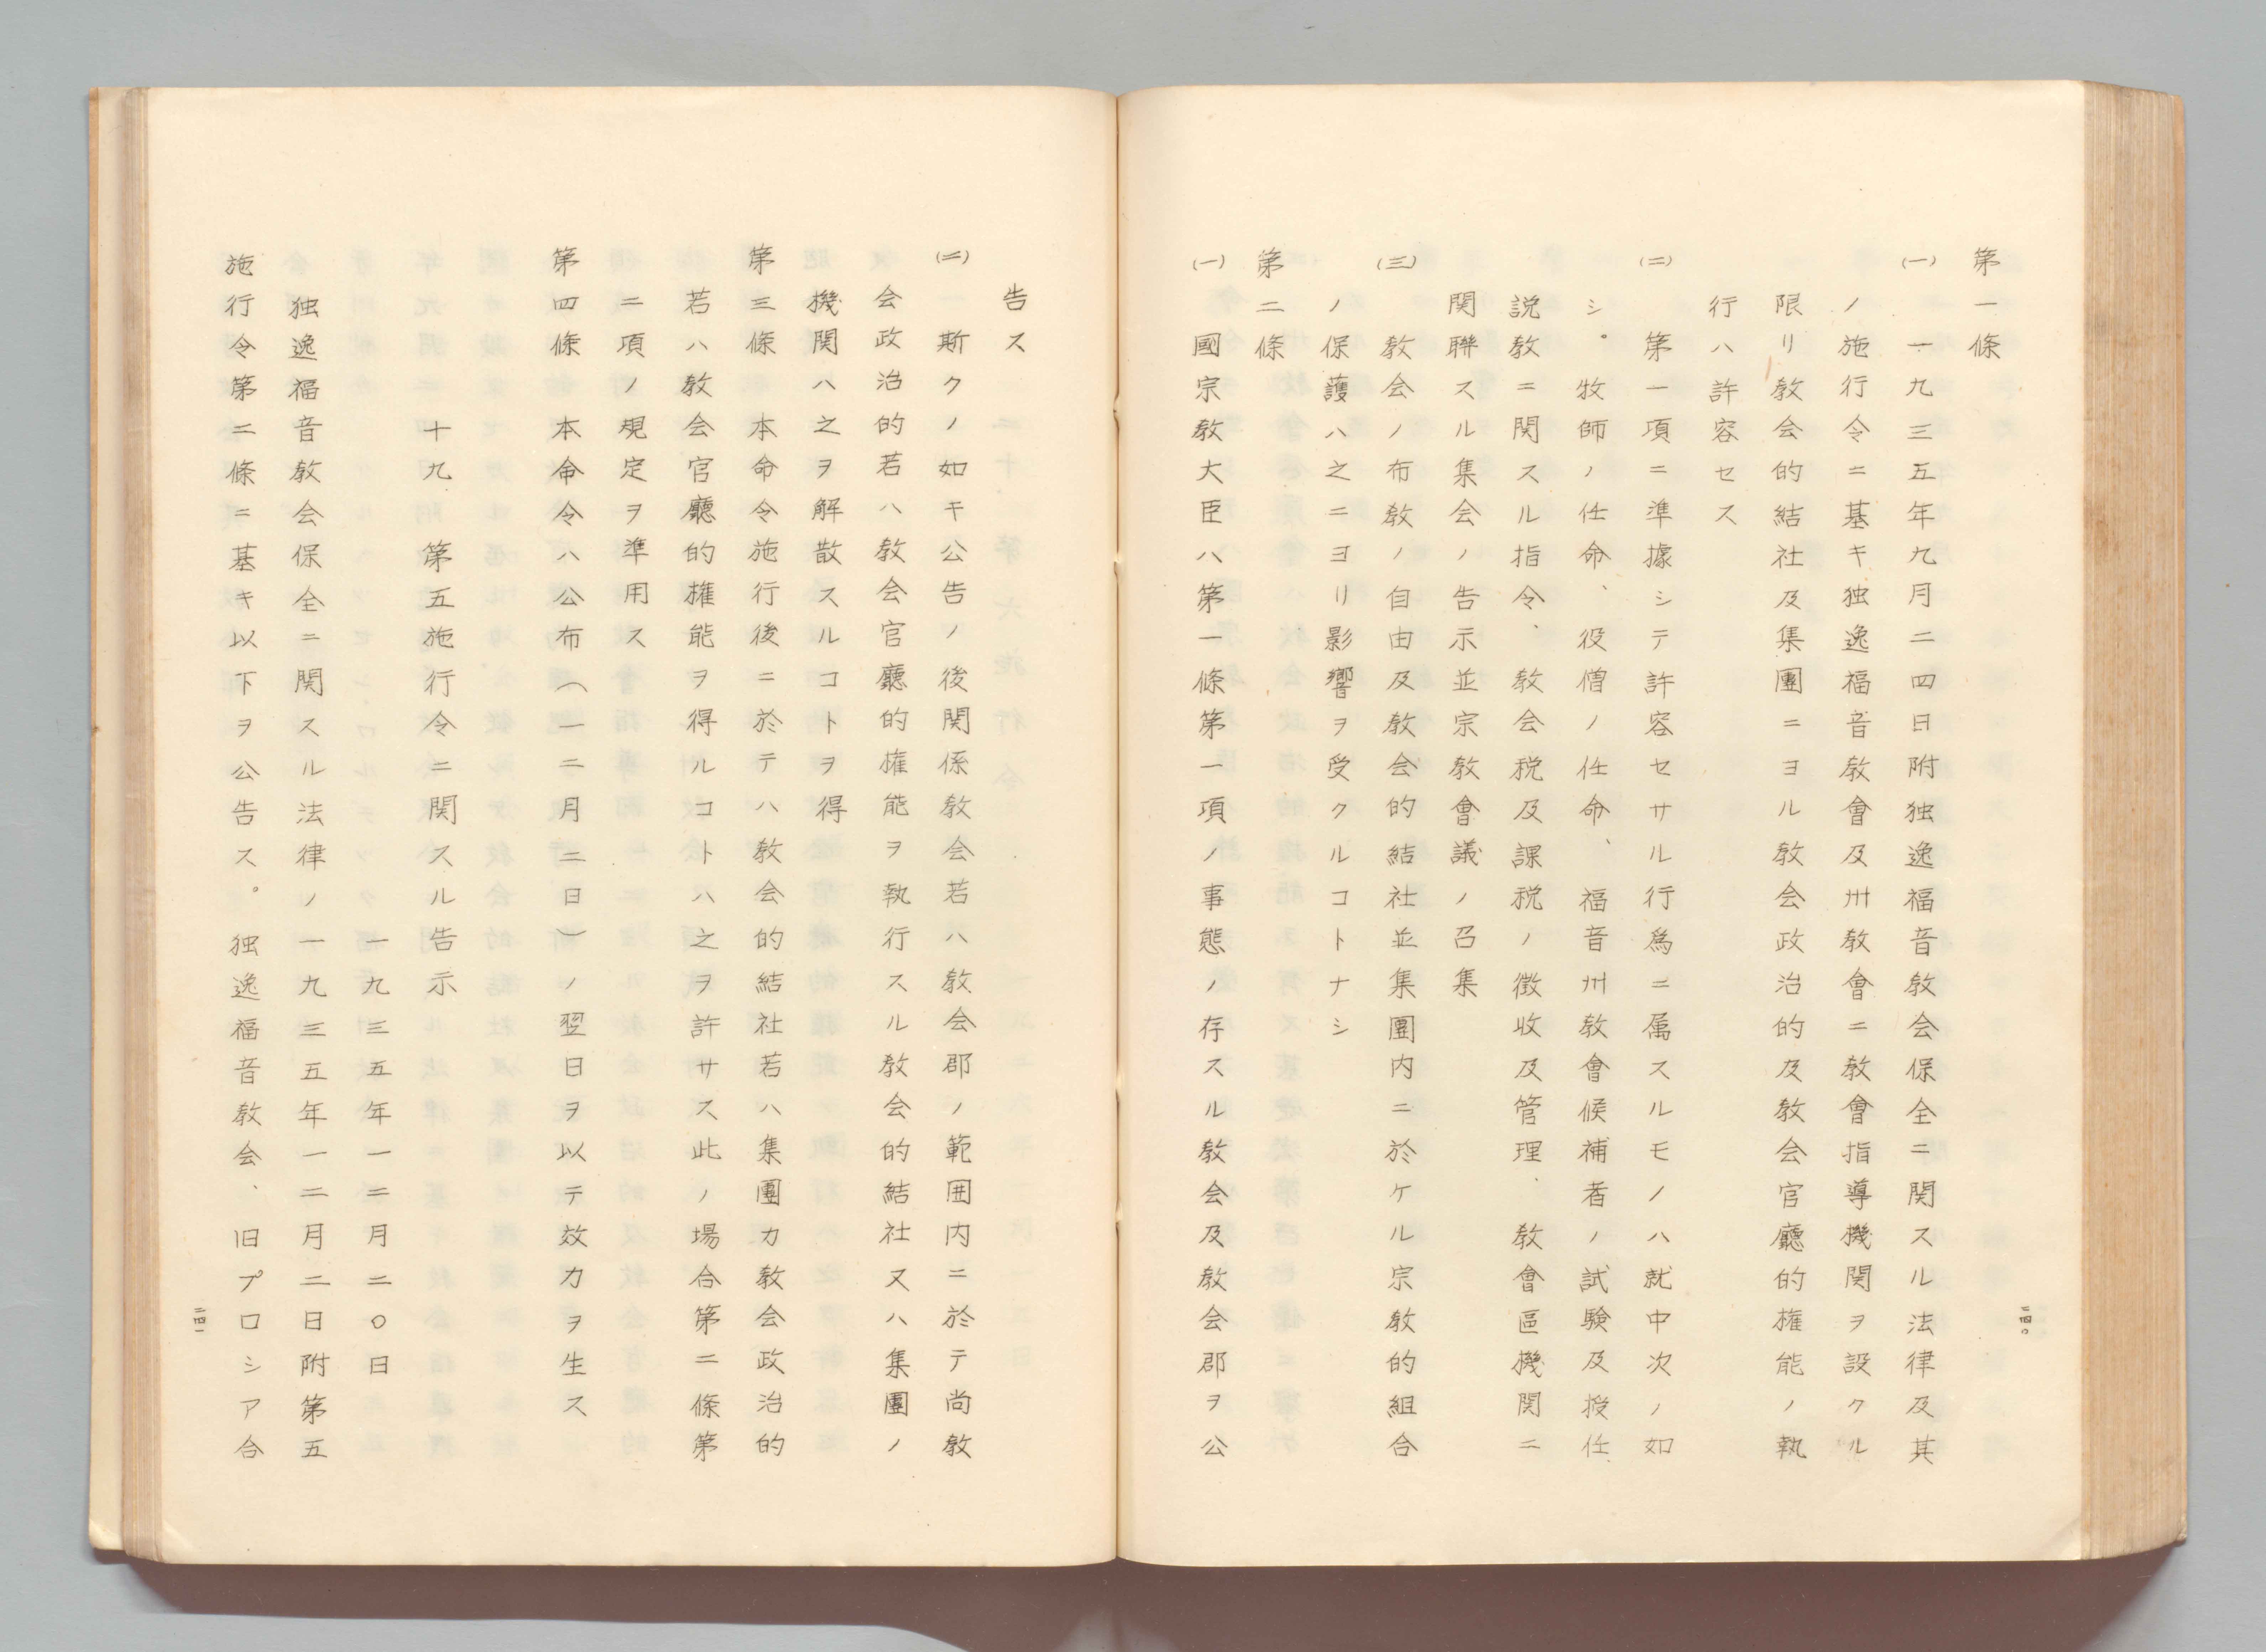 第一條
(一) 一九三五年九月二四日附独逸福音教会保全ニ関スル法律及其
ノ施行令ニ基キ独逸福音教會及卅教會ニ教會指導機関ヲ設クル
限リ教会的結社及集團ニヨル教会政治的及教会官廳的権能ノ執
行ハ許容セス
(二) 第一項ニ準據シテ許容セサル行爲ニ属スルモノハ就中次ノ如
シ。牧師ノ任命、役僧ノ任命、福音卅教會候補者ノ試験及授任
説教ニ関スル指令、教会税及課税ノ徴收及管理、教會區機関ニ
関聯スル集会ノ告示並宗教會議ノ召集
(三) 教会ノ布教ノ自由及教会的結社並集團内ニ於ケル宗教的組合
ノ保護ハ之ニヨリ影響ヲ受クルコトナシ
第二條
(一) 國宗教大臣ハ第一條第一項ノ事態ノ存スル教会及教会郡ヲ公
二四〇
告ス
(二) 斯クノ如キ公告ノ後関係教会若ハ教会郡ノ範囲内ニ於テ尚教
会政治的若ハ教会官廳的権能ヲ執行スル教会的結社又ハ集團ノ
機関ハ之ヲ解散スルコトヲ得
第三條 本命令施行後ニ於テハ教会的結社若ハ集團カ教会政治的
若ハ教会官廳的権能ヲ得ルコトハ之ヲ許サス此ノ場合第二條第
二項ノ規定ヲ準用ス
第四條 本命令ハ公布(一二月二日)ノ翌日ヲ以テ效力ヲ生ス
十九 第五施行令ニ関スル告示
一九三五年一二月二〇日
独逸福音教会保全ニ関スル法律ノ一九三五年一二月二日附第五
施行令第二條ニ基キ以下ヲ公告ス。独逸福音教会、旧プロシア合
二四一